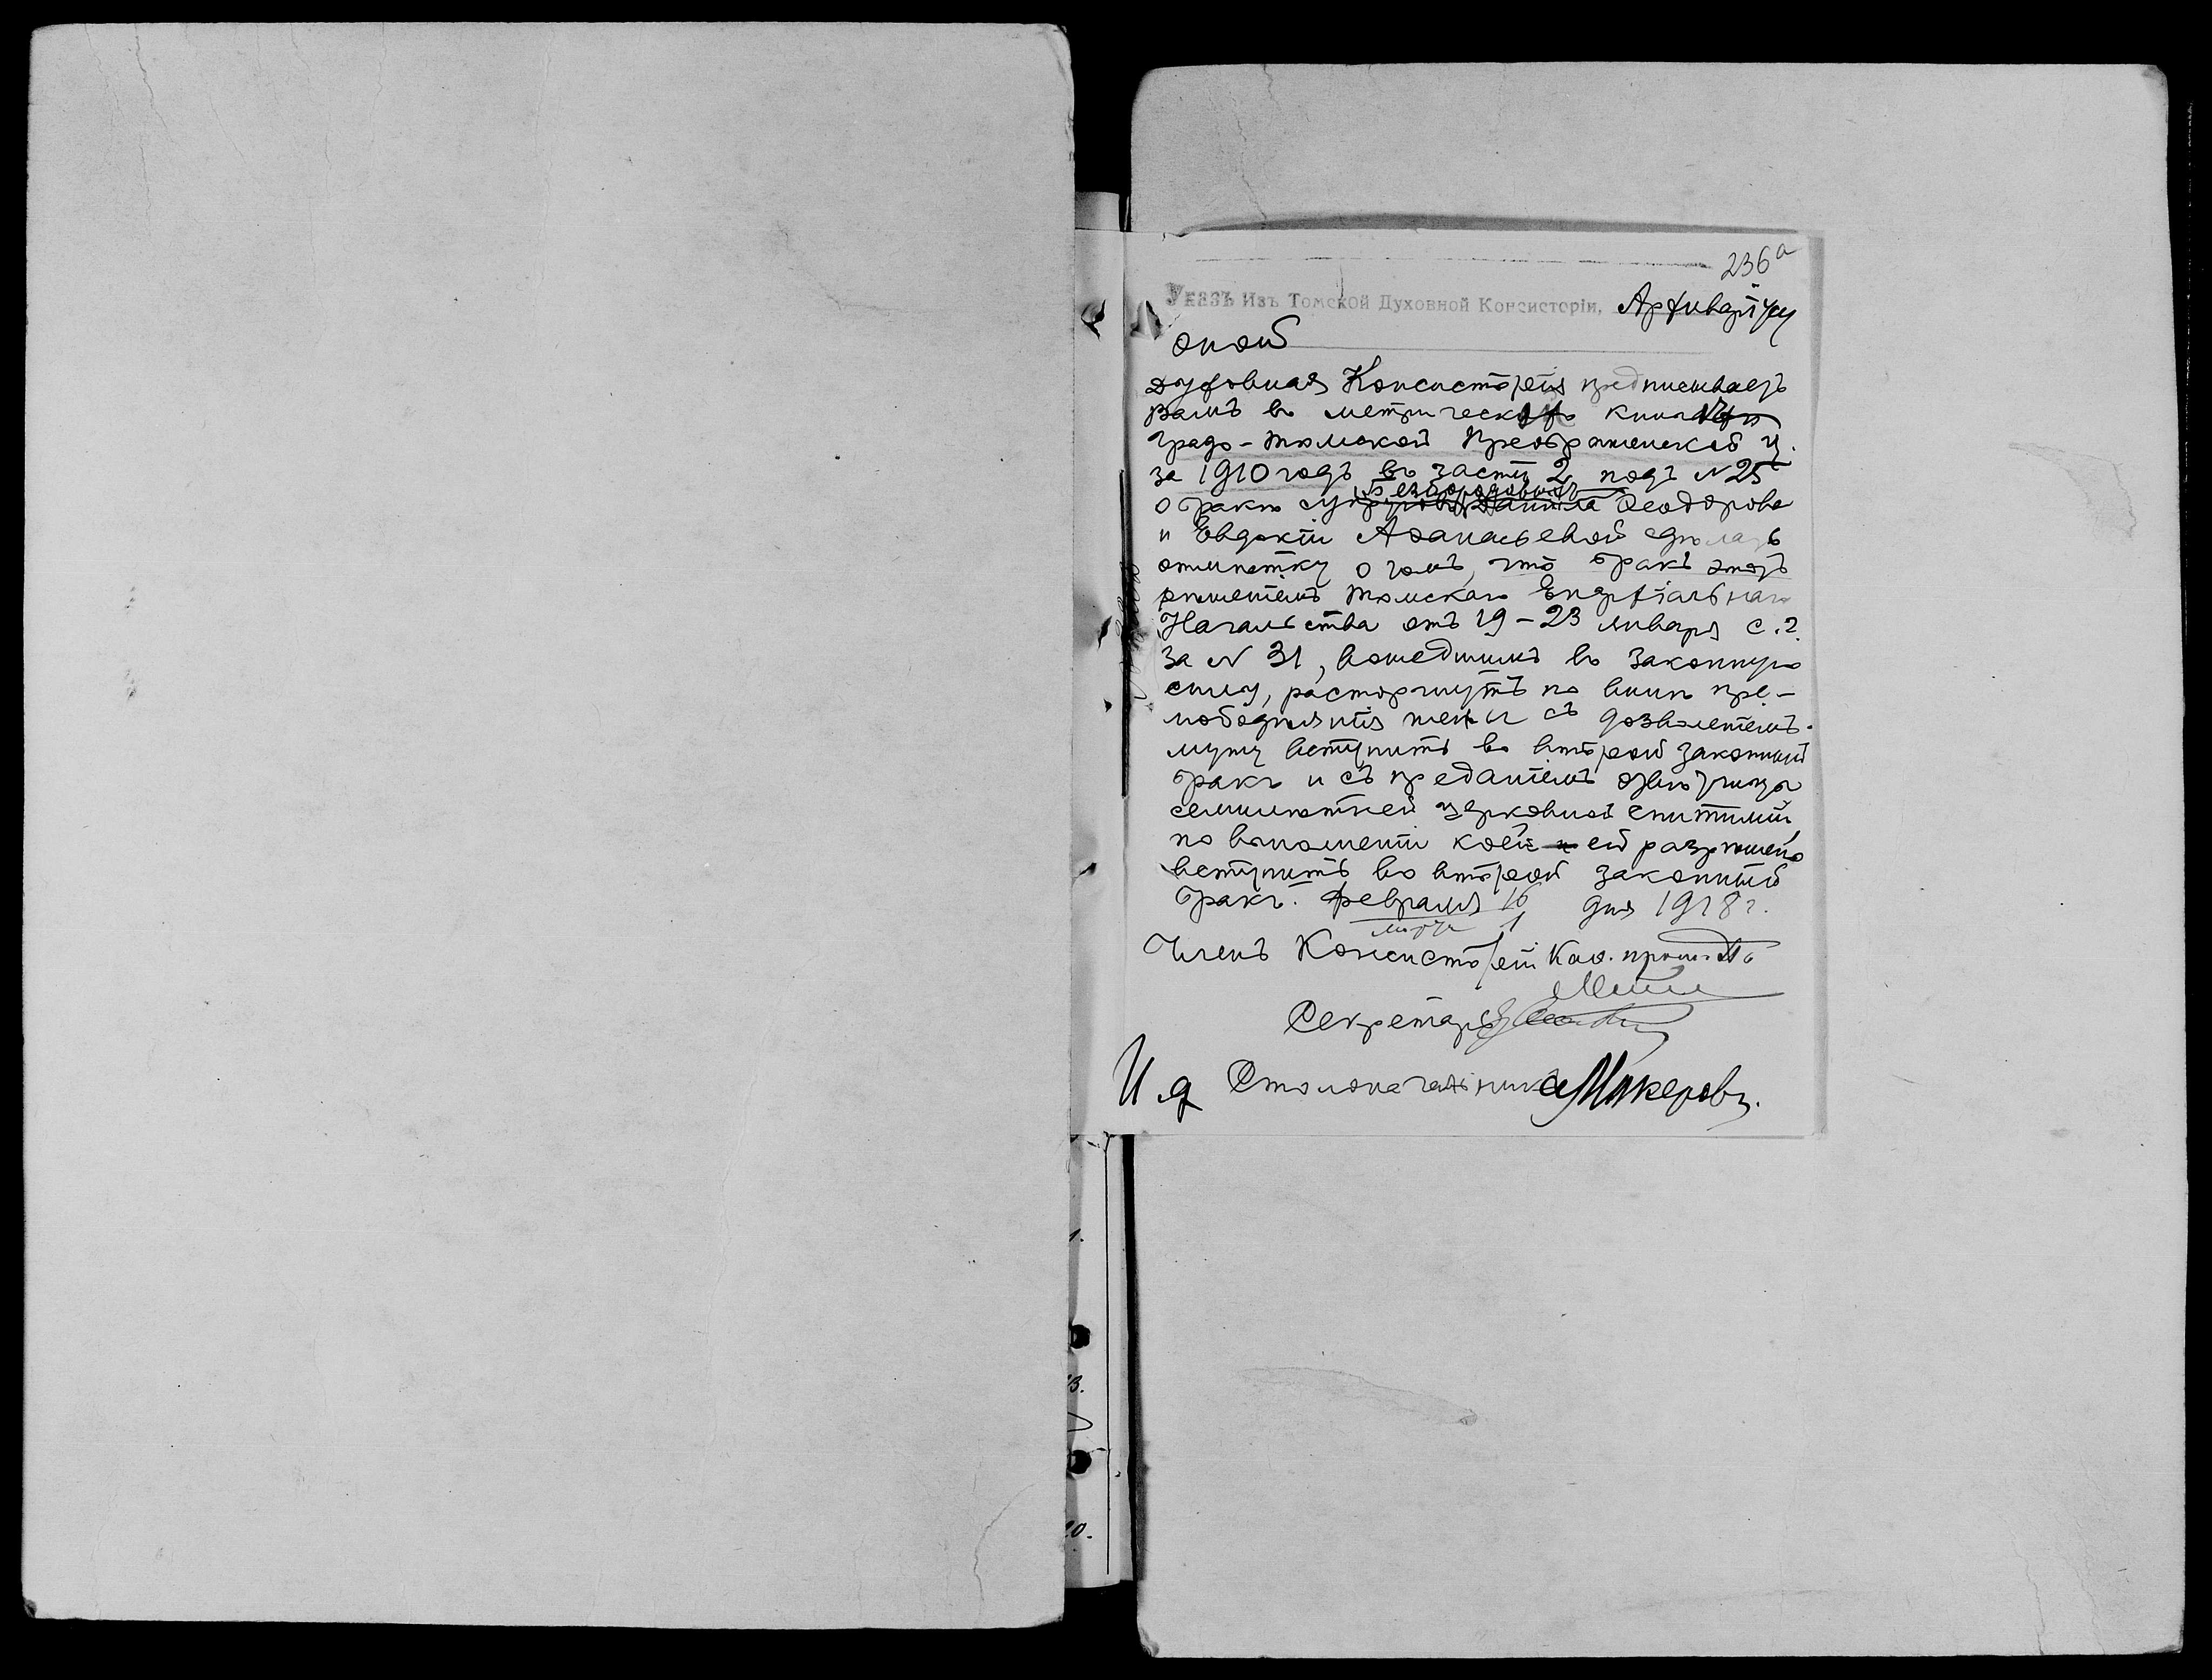 236а
Указъ Изъ Томской Духовной Консисторіи, Архиваріусу
оной
Духовная Консисторія предписываетъ
Вамъ въ метрической книгѣ
Градо-Томской Преображенской ц.
за 1910 годъ въ части 2 подъ № 25
Безбородовыхъ
о бракѣ супруговъ Даніила Ѳеодорова
и Евдокіи Аѳанасьевой сдѣлать
отмѣтку о томъ, что бракъ этотъ
рѣшеніемъ Томскаго Епархіальнаго
Начальства отъ 19-23 января с.г.
за № 31, вошедшимъ въ законную
силу, расторгнутъ по винѣ пре-
любодѣянія жены съ дозволеніемъ
мужу вступить во второй законный
бракъ и съ преданіемъ отвѣтчицы
семилѣтней церковной епитиміи,
по выполненіи коей ей разрѣшено
вступить во второй законный
бракъ. Февраля 16 дня 1918 г.
марта 1
Членъ Консисторіи Каѳ. прот.
Секретарь
И.д. Столоначальника Макеровъ.
1.
13.
20.